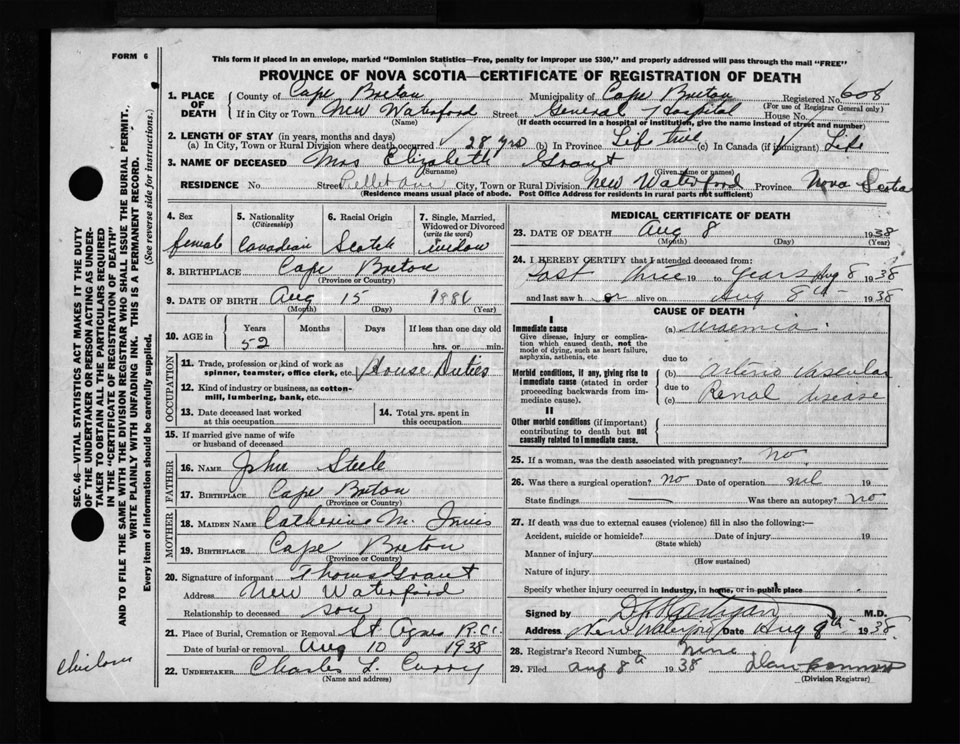 FORM 6
This form if placed in an envelope, marked "Dominion Statistics—Free, penalty for improper use $300," and properly addressed will pass through the mail "FREE"
PROVINCE OF NOVA SCOTIA—CERTIFICATE OF REGISTRATION OF DEATH
1. PLACE OF DEATH County of Cape Breton Municipality of Cape Breton Registered No. 608
(For use of Registrar General only)
If in City or Town New Waterford Street General Hospital House No.
(Name) (If death occurred in a hospital or institution, give the name instead of street and number)
2. LENGTH OF STAY (in years, months and days)
(a) In City, Town or Rural Division where death occurred 28 yrs (b) In Province Life time (c) In Canada (if immigrant) Life
3. NAME OF DECEASED Mrs Elizabeth Grant
(Surname) (Given name or names)
RESIDENCE No. Street City, Town or Rural Division New Waterford Province Nova Scotia
(Residence means usual place of abode. Post Office Address for residents in rural parts not sufficient)
4. Sex 5. Nationality (Citizenship) 6. Racial Origin 7. Single, Married, Widowed or Divorced (write the word)
female Canadian Scotch widow
8. BIRTHPLACE Cape Breton
(Province or Country)
9. DATE OF BIRTH Aug 15
(Month) (Day) (Year)
10. AGE in Years Months Days If less than one day old
52 hrs. or min.
OCCUPATION
11. Trade, profession or kind of work as spinner, teamster, office clerk, etc. House Duties
12. Kind of industry or business, as cotton-mill, lumbering, bank, etc.
13. Date deceased last worked at this occupation 14. Total yrs. spent in this occupation
15. If married give name of wife or husband of deceased
FATHER
16. NAME John Steele
17. BIRTHPLACE Cape Breton
(Province or Country)
MOTHER
18. MAIDEN NAME Catherine M.
19. BIRTHPLACE Cape Breton
(Province or Country)
20. Signature of informant Thomas Grant
Address New Waterford
Relationship to deceased son
21. Place of Burial, Cremation or Removal St. Agnes R.C.
Date of burial or removal Aug 10 1938
22. UNDERTAKER Charles L. Curry
(Name and address)
MEDICAL CERTIFICATE OF DEATH
23. DATE OF DEATH Aug 8 1938
(Month) (Day) (Year)
24. I HEREBY CERTIFY that I attended deceased from:
Last three 19 to years Aug 8 1938
and last saw h er alive on Aug 8th 1938
CAUSE OF DEATH
I
Immediate cause (a) Uraemia.
Give disease, injury or complication which caused death, not the mode of dying, such as heart failure, asphyxia, asthenia, etc
due to
Morbid conditions, if any, giving rise to immediate cause (stated in order proceeding backwards from immediate cause). (b) Arterio vascular
due to
(c) Renal disease
II
Other morbid conditions (if important) contributing to death but not causally related to immediate cause.
25. If a woman, was the death associated with pregnancy? no
26. Was there a surgical operation? no Date of operation nil 19
State findings Was there an autopsy? no
27. If death was due to external causes (violence) fill in also the following:—
Accident, suicide or homicide? Date of injury 19
(State which)
Manner of injury
(How sustained)
Nature of injury
Specify whether injury occurred in industry, in home, or in public place
Signed by M.D.
Address New Waterford Date Aug 9th 1938
28. Registrar's Record Number Nine
29. Filed Aug 8th 1938
(Division Registrar)
SEC. 46—VITAL STATISTICS ACT MAKES IT THE DUTY
OF THE UNDERTAKER OR PERSON ACTING AS UNDER-
TAKER TO OBTAIN ALL THE PARTICULARS REQUIRED
IN THE "CERTIFICATE OF REGISTRATION OF DEATH"
AND TO FILE THE SAME WITH THE DIVISION REGISTRAR WHO SHALL ISSUE THE BURIAL PERMIT.
WRITE PLAINLY WITH UNFADING INK. THIS IS A PERMANENT RECORD.
Every item of information should be carefully supplied. (See reverse side for instructions.)